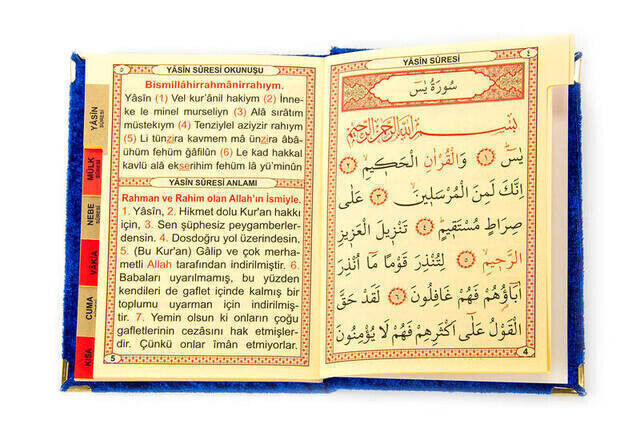 YÂSÎN SÛRESİ OKUNUŞU
٥
Bismillâhirrahmânirrahıym.
Yâsîn (1) Vel kur'ânil hakiym (2) İnne-
ke le minel murseliyn (3) Alâ sırâtım
müstekıym (4) Tenziylel aziyzir rahıym
(5) Li tünzira kavmem mâ ünzira âbâ-
ühüm fehüm ğâfilûn (6) Le kad hakkal
kavlü alâ ekserihim fehüm lâ yü'minûn
YÂSÎN SÛRESİ ANLAMI
Rahman ve Rahim olan Allah'ın ismiyle.
1. Yâsîn, 2. Hikmet dolu Kur'an hakkı
için, 3. Sen şüphesiz peygamberler-
densin. 4. Dosdoğru yol üzerindesin.
5. (Bu Kur'an) Gâlip ve çok merha-
metli Allah tarafından indirilmiştir. 6.
Babaları uyarılmamış, bu yüzden
kendileri de gaflet içinde kalmış bir
toplumu uyarman için indirilmiş-
tir. 7. Yemin olsun ki onların çoğu
gafletlerinin cezasını hak etmişler-
dir. Çünkü onlar îmân etmiyorlar.
5
YÂSİN
SÛRESİ
MÜLK
NEBE
SÛRESİ
VÂKIA
CUMA
KISA
YÂSÎN SÛRESİ
٤
سُورَةُ يٰسٓ
بِسْمِ اللّٰهِ الرَّحْمٰنِ الرَّحِيمِ
يٰسٓ ﴿١﴾ وَالْقُرْاٰنِ الْحَكِيمِ ﴿٢﴾
اِنَّكَ لَمِنَ الْمُرْسَلِينَ ﴿٣﴾ عَلٰى
صِرَاطٍ مُسْتَقِيمٍ ﴿٤﴾ تَنْزِيلَ الْعَزِيزِ
الرَّحِيمِ ﴿٥﴾ لِتُنْذِرَ قَوْمًا مَٓا اُنْذِرَ
اٰبَٓاؤُهُمْ فَهُمْ غَافِلُونَ ﴿٦﴾ لَقَدْ حَقَّ
الْقَوْلُ عَلٰٓى اَكْثَرِهِمْ فَهُمْ لَا يُؤْمِنُونَ
4